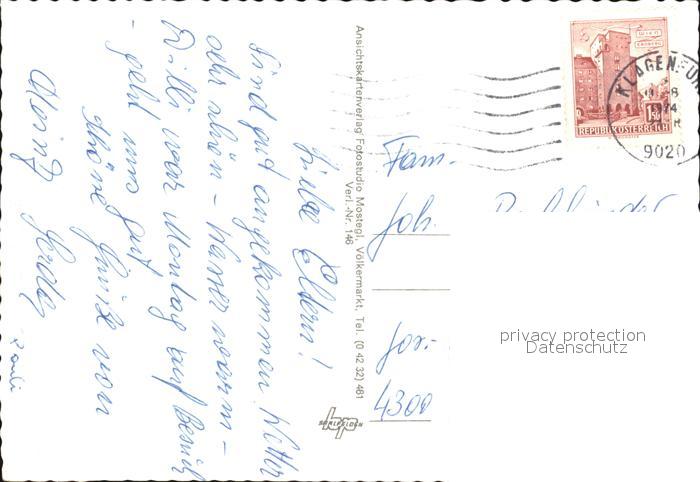 Liebe Eltern!
Sind gut angekommen. Wetter
sehr schön - Wasser warm -
Willi war Montag auf Besuch
- geht uns gut
Schöne Grüße von
Heinz Gerda
Ansichtskartenverlag Fotostudio Mostegl, Völkermarkt, Tel. (0 42 32) 461
Verl.-Nr. 146
Fam.
Joh.
4300
WIEN
ERDBERG
1.50
REPUBLIK ÖSTERREICH
KLAGENFUR
9020
privacy protection
Datenschutz